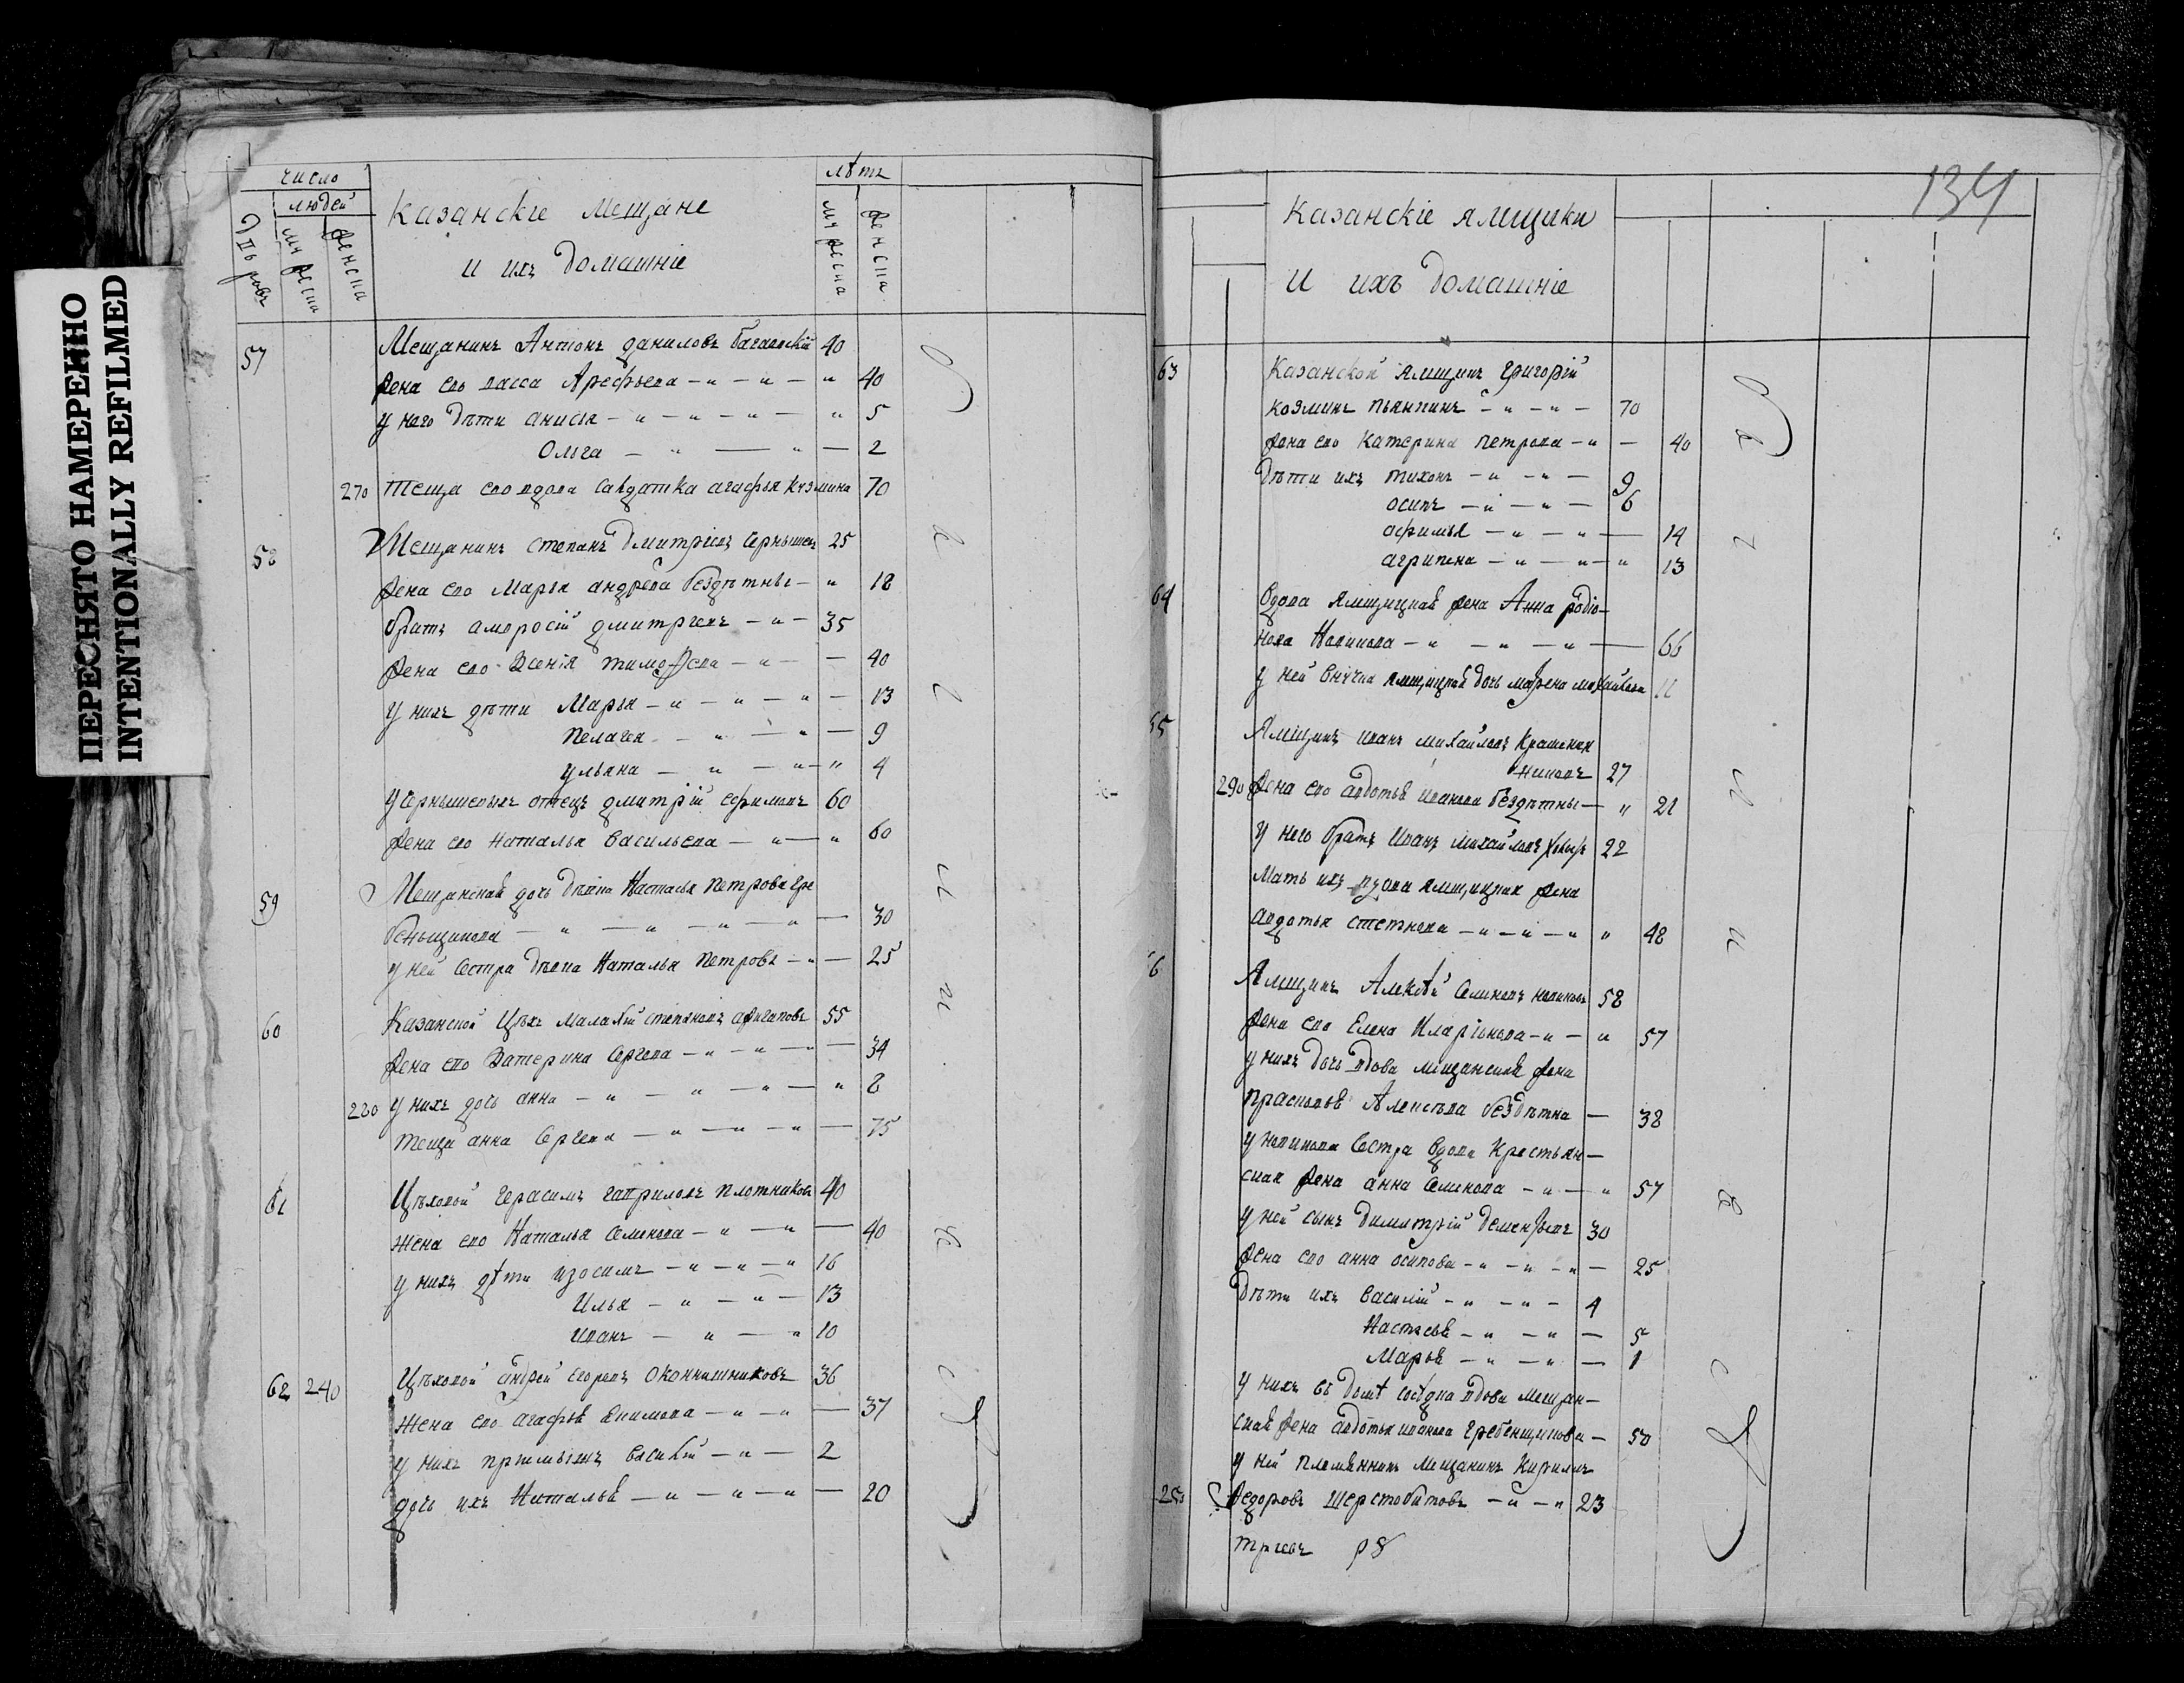 ПЕРЕСНЯТО НАМЕРЕННО
INTENTIONALLY REFILMED
число
людей
лѣтъ
Казанскіе мещане
и ихъ домашніе
57 Мещанинъ Антонъ Даниловъ 40
жена ево васса Арефьева 40
у него дѣти анисья 5
Ольга 2
270 теща ево вдова салдатка агафья кузмина 70
58 Мещанинъ степанъ Дмитріевъ Чернышевъ 25
жена ево Марья андрѣева бездѣтны 18
братъ амвросій дмитріевъ 35
жена ево Ксенія тимофеева 40
у нихъ дѣти Марья 13
пелагея 9
ульяна 4
у Чернышевыхъ отецъ дмитрій ефимовъ 60
жена ево наталья васильева 60
59 Мещанская дочь Дѣвка Настасья Петрова Гре
бенщикова 30
у ней Сестра Дѣвка Наталья Петрова 25
60 Казанской Цѣхъ Малафій степановъ 55
жена ево Катерина Сергеева 34
280 у нихъ дочь анна 8
теща анна Сергеева 75
61 Цѣховой Герасимъ гавриловъ плотниковъ 40
жена ево Наталья Семенова 40
у нихъ дѣти изосимъ 16
Илья 13
иванъ 10
62 240 Цѣховой андрей егоревъ Оконнишниковъ 36
жена ево агафья екимова 37
у нихъ василій 2
дочь ихъ Наталья 20
134
Казанскіе ямщики
и ихъ домашніе
63 Казанской ямщикъ Григорій
козминъ пьянкинъ 70
жена ево катерина петрова 40
Дѣти ихъ тихонъ 9
осипъ 6
афимья 14
агрипена 13
64 Вдова ямщицкая жена Анна родіо-
нова Новикова 66
у ней внучка ямщицкая дочь мафена михайлова 11
65 Ямщикъ иванъ михайловъ Крашенин
никовъ 27
290 жена ево авдотья иванова бездѣтны 21
у него братъ Иванъ михайловъ 22
Мать ихъ вдова ямщицкая жена
авдотья степанова 48
66 Ямщикъ Алексѣй Семеновъ новиковъ 58
жена ево Елена Иларіонова 57
у нихъ дочь вдова мещанская жена
прасковья Алексѣева бездѣтна 38
у новикова Сестра вдова Крестьян-
ская жена анна Семенова 57
у ней сынъ димитрій Дементьевъ 30
жена ево анна осипова 25
Дѣти ихъ василій 4
Настасья 5
Марья 1
у нихъ въ домѣ сосѣдка вдова мещан-
ская жена авдотья иванова Гребенщикова 50
у ней племянникъ мещанинъ Кирилъ
Федоровъ Шерстобитовъ 23